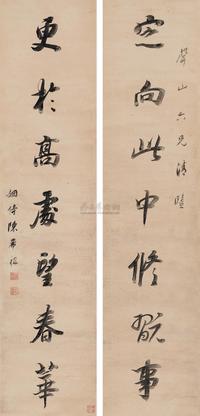 聲山六兄清
定向此中修禊事
更於高處望春華
姻侍陳希祖